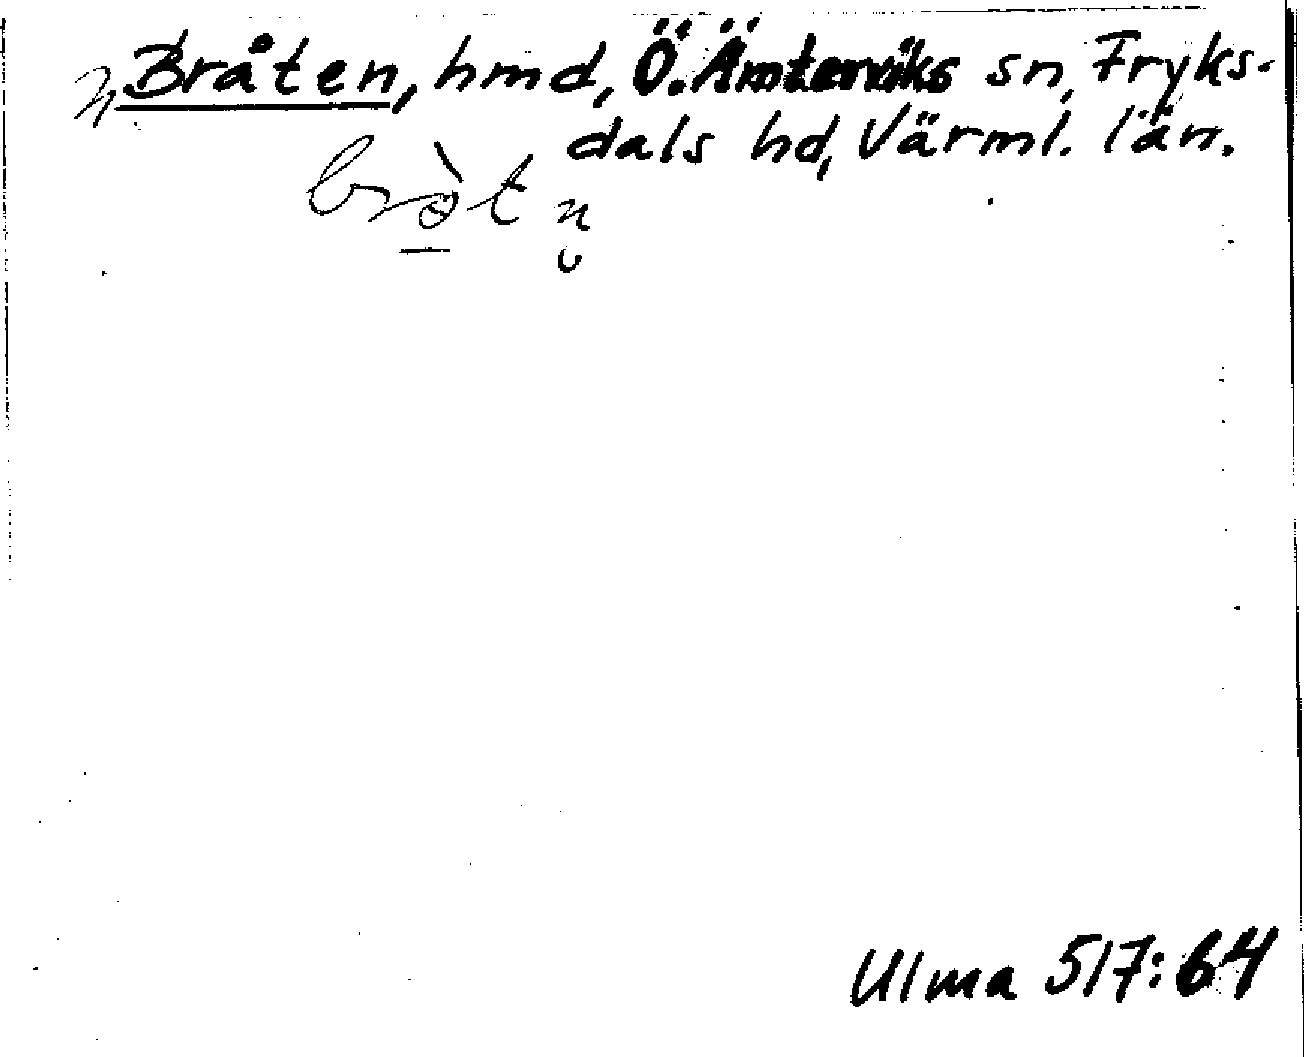 Bråten, hmd, Ö. Ämterviks sn, Fryks-
dals hd, Värml. län.
Ulma 517:64